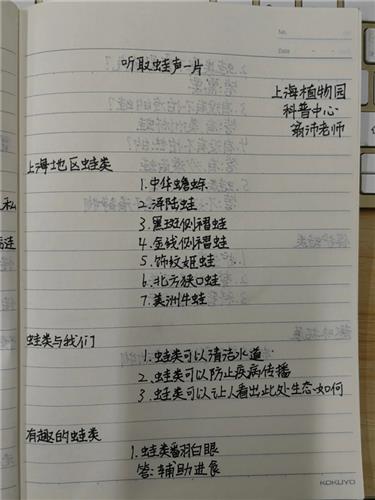 No.
Date
听取蛙声一片
上海植物园
科普中心
老师
上海地区蛙类
1.中华蟾蜍
2.泽陆蛙
3.黑斑侧褶蛙
4.金线侧褶蛙
5.饰纹姬蛙
6.北方狭口蛙
7.美洲牛蛙
蛙类与我们
1.蛙类可以清洁水道
2.蛙类可以防止疾病传播
3.蛙类可以让人看出此处生态如何
有趣的蛙类
1.蛙类翻白眼
答:辅助进食
KOKUYO